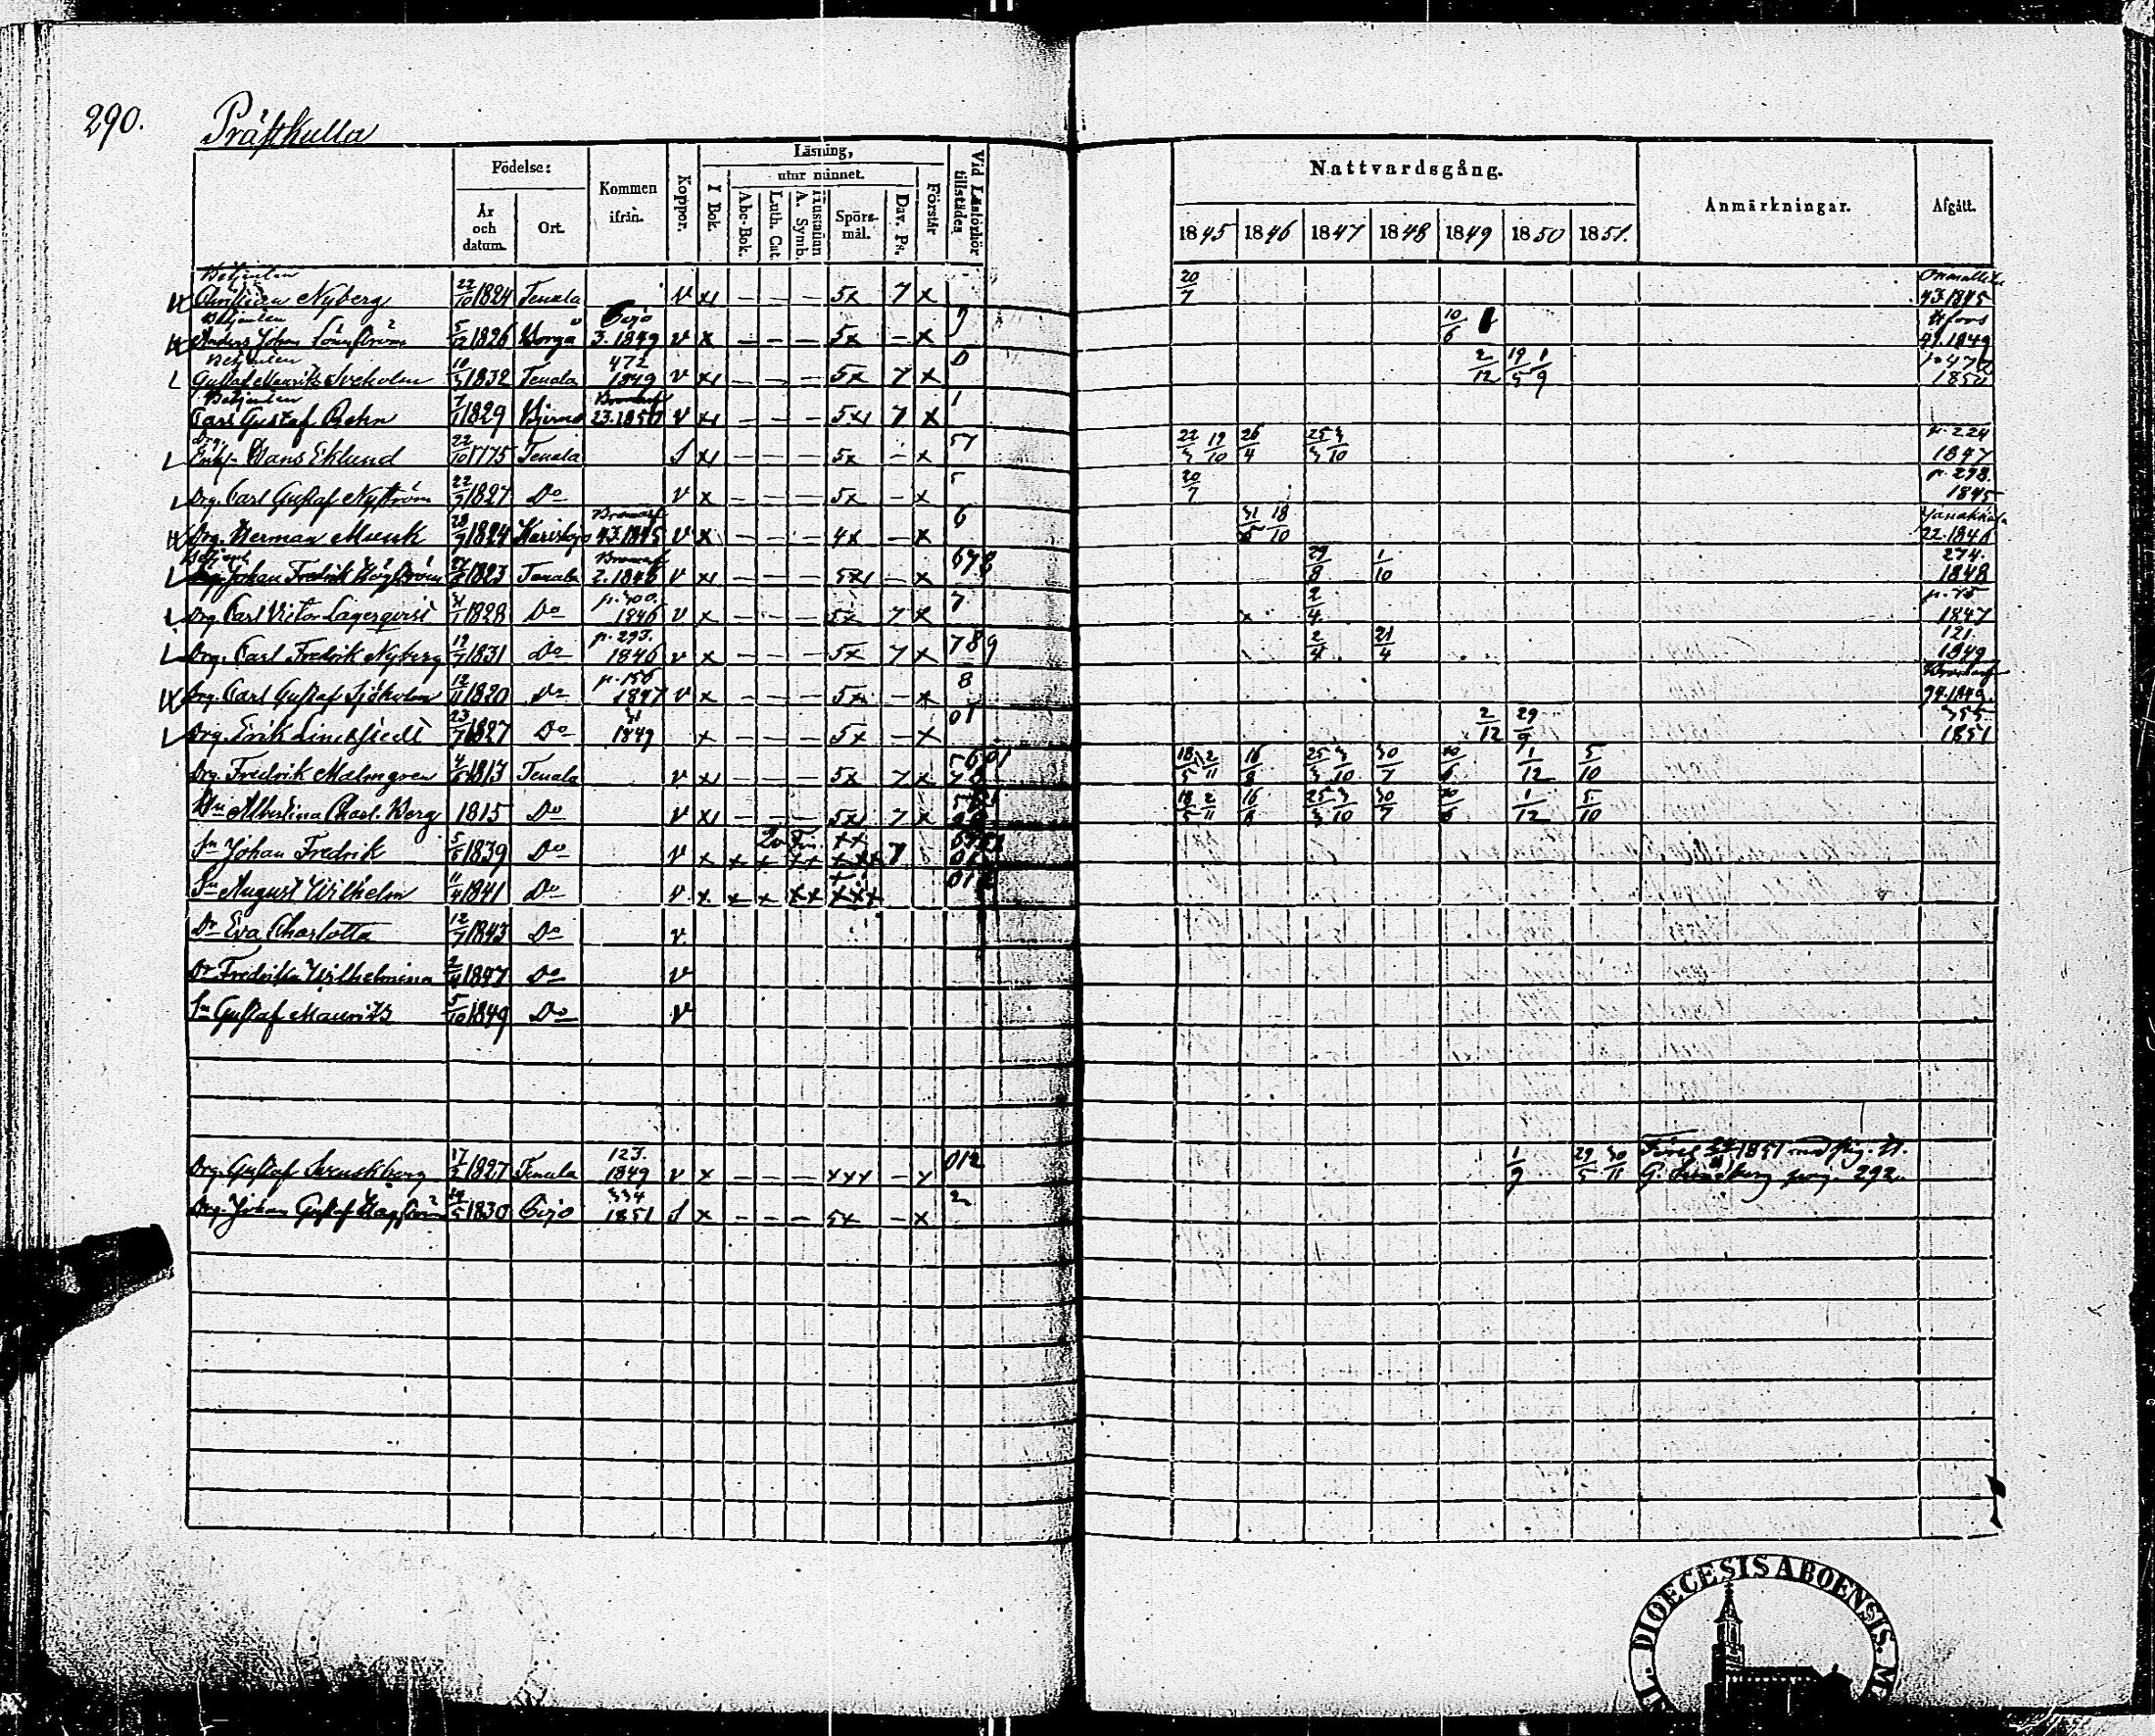 290. Prästkulla
Födelse: År och datum. Ort. Kommen ifrån. Koppor. Läsning, I Bok. utur minnet. Abc-Bok. Luth. Cat. A. Symb. Spörs-mål. Dav. Ps. Förstår Vid Läsförhör tillstädes
Nattvardsgång. 1845 1846 1847 1848 1849 1850 1851. Anmärkningar. Afgått.
Betjenten
Christian Nyberg 22/10 1824 Tenala v x1 — — — 5x 7 x 20/7 43.1845
Betjenten Bojo
Anders Johan Lönnström 5/12 1826 Borgå 3.1849 v x — — — 5x — x 10/6 Hfors 41.1849
Betjenten 472
Gustaf Mauritz 1832 Tenala 1849 v x1 — — — 5x 7 x 0 2/12 19/5 1/9 1850
Betjenten
Carl Gustaf Rehn 7/1 1829 Bjerno 23.1850 v x1 — — — 5x1 7 x 1
Hans Eklund 22/10 1775 Tenala S x1 — — — 5x — x 57 22/3 19/10 26/4 25/3 3/10 p. 224 1847
Drg. Carl Gustaf Nyström 22/9 1827 Do v x — — — 5x — x 5 20/7 p. 298. 1845
Drg. Herman Munk 28/9 1824 Karislojo Bromarf 43.1845 v x — — — 4x — x 6 31/5 18/10 Janakkala 22.1846
Johan Fredrik Högström 1823 Tenala Bromarf 2.1846 v x1 — — — 5x1 — x 678 29/8 1/10 274. 1848
Drg. Carl Victor Lagerqvist 31/1 1828 Do p. 300. 1846 v x — — — 5x 7 x 7 x 2/4 1847
Drg. Carl Fredrik Nyberg 19/7 1831 Do p. 293. 1846 v x — — — 5x 7 x 789 2/4 21/4 121. 1849
Drg. Carl Gustaf Sjöholm 12/11 1820 Do p. 156 1847 v x — — — 5x — x 8 94.1849.
Drg. Erik Lindstedt 23/7 1827 Do 31 1849 x — — — 5x — x 01 2/12 29/9 355 1851
Drg. Fredrik Malmgren 4/5 1813 Tenala v x1 — — — 5x 7 x 18/5 2/11 16/8 25/3 3/10 30/7 10/6 1/12 5/10
Hu Albertina Charl. Berg 1815 Do v x1 — — — 5x1 7 x 18/5 2/11 16/8 25/3 3/10 30/7 10/6 1/12 5/10
Sn Johan Fredrik 5/5 1839 Do v x x x xx xxx 7
Sn August Wilhelm 11/4 1841 Do v x x x xx xxx 012
Dr Eva Charlotta 12/7 1843 Do v
Dr Fredrika Wilhelmina 2/4 1847 Do v
Sn Gustaf Mauritz 5/10 1849 Do v
Drg. Gustaf Svenskberg 17/2 1827 Tenala 123. 1849 v x — — — xxx — x 012 1/9 29/5 30/11 1851 med pig. H.
G. pag. 292.
Drg. Johan Gustaf Hagström 1830 Bojo 334 1851 S x — — — 5x — x 2
DIOECESIS ABOENSIS. M